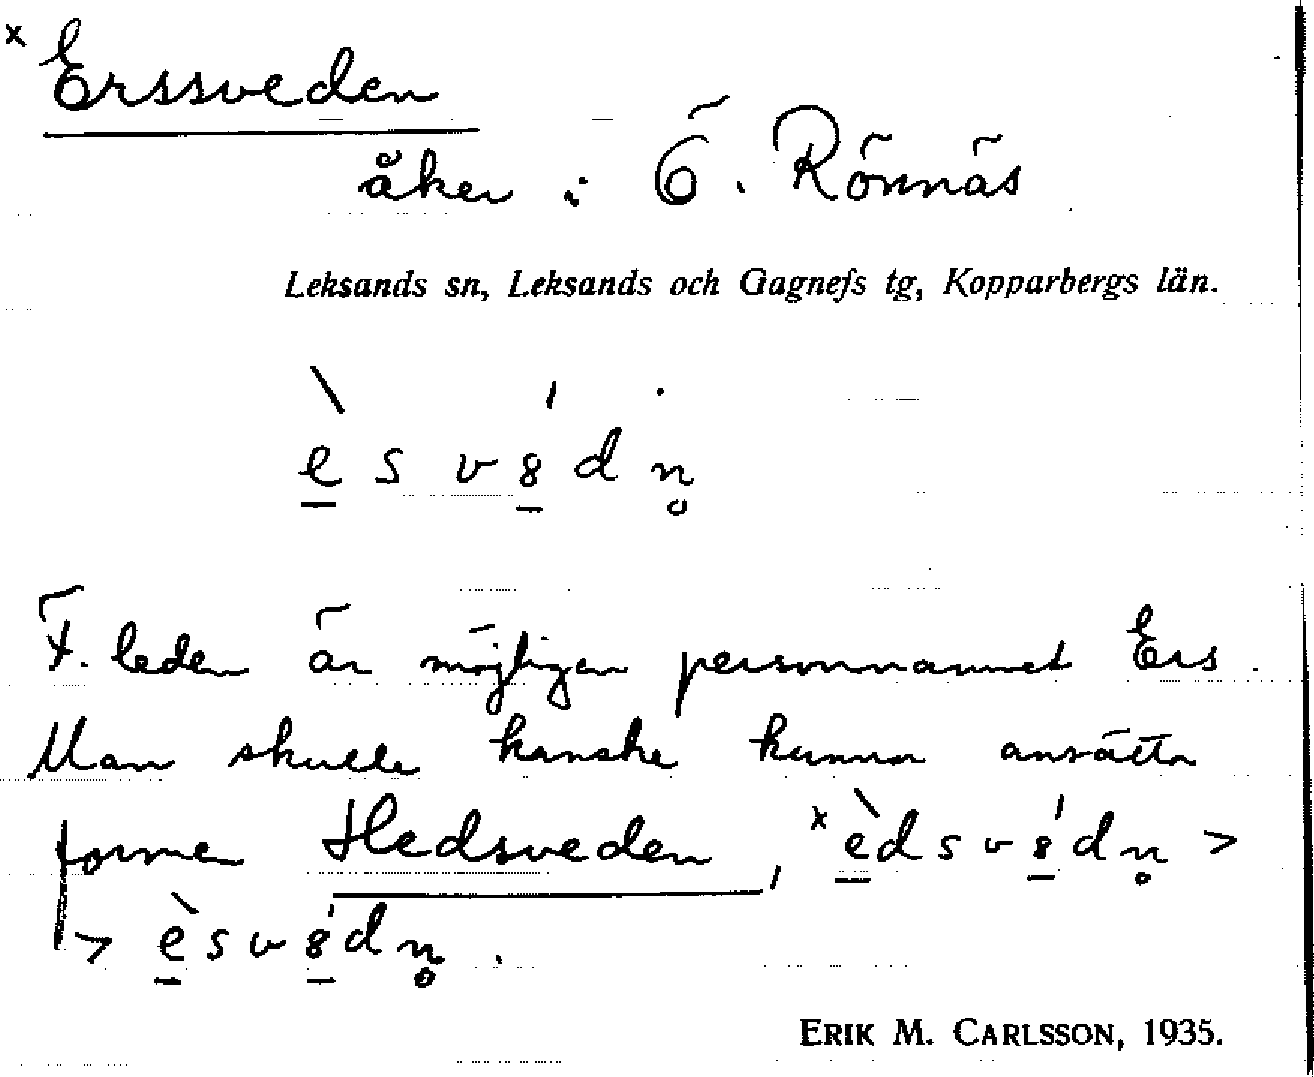 x Erssveden
åker i Ö. Rönnäs
Leksands sn, Leksands och Gagnefs tg, Kopparbergs län.
è s v 8́ d n̥
F. leden är möjligen personnamnet Ers.
Man skulle kanske kunna ansätta
formen Hedsveden, x èdsv8́dn̥ >
> èsv8́dn̥.
ERIK M. CARLSSON, 1935.